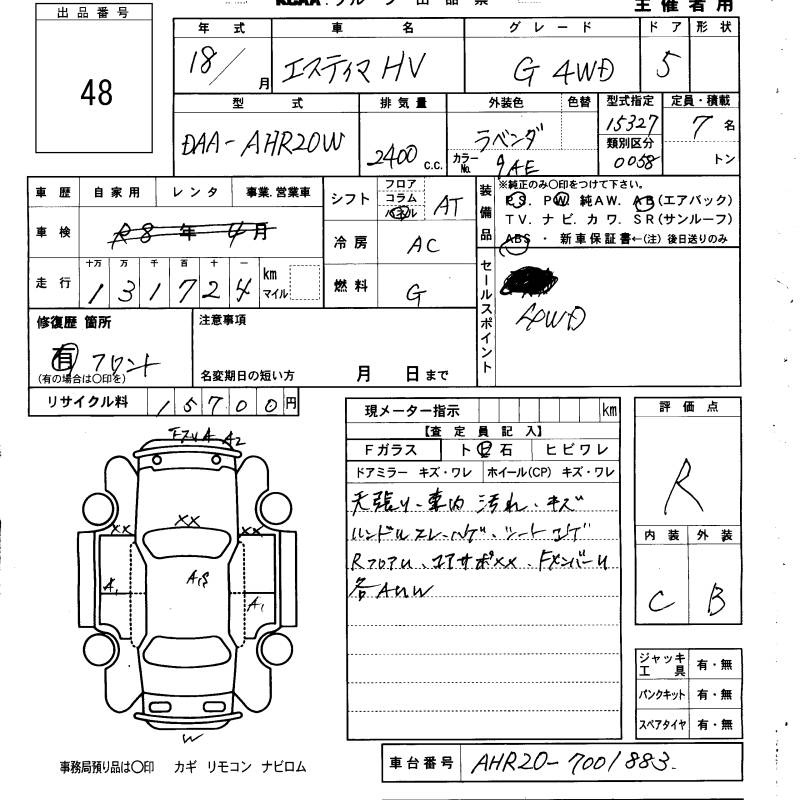 出品番号
48
主催者用
年式 車名 グレード ドア 形状
18/ 月 エスティマHV G 4WD 5
型式 排気量 外装色 色替 型式指定 定員・積載
DAA-AHR20W 2400 c.c. ラベンダ 15327 7名
カラーNo. 9AE 類別区分 0058 トン
車歴 自家用 レンタ 事業.営業車
車検 R8年4月
走行 十万 万 千 百 十 一 km マイル
131724
シフト フロア コラム パネル AT
冷房 AC
燃料 G
装備品 ※純正のみ○印をつけて下さい。
PS. PW 純AW. AB(エアバック)
TV. ナビ. カワ. SR(サンルーフ)
ABS ・ 新車保証書←(注) 後日送りのみ
セールスポイント 4WD
修復歴 箇所
有 フロント
(有の場合は○印を)
注意事項
名変期日の短い方 月 日まで
リサイクル料 15700円
現メーター指示 km
【査定員記入】
Fガラス ト 石 ヒビワレ
ドアミラー キズ・ワレ ホイール(CP) キズ・ワレ
天張り、車内 汚れ・キズ
ハンドルスレ・ハゲ・シートコゲ
RフロアU、コアサポXX、FメンバーU
各AUW
評価点
R
内装 外装
C B
A2
XX XX XX
A1 A1
W
ジャッキ工具 有・無
パンクキット 有・無
スペアタイヤ 有・無
事務局預り品は○印 カギ リモコン ナビロム
車台番号 AHR20-7001883